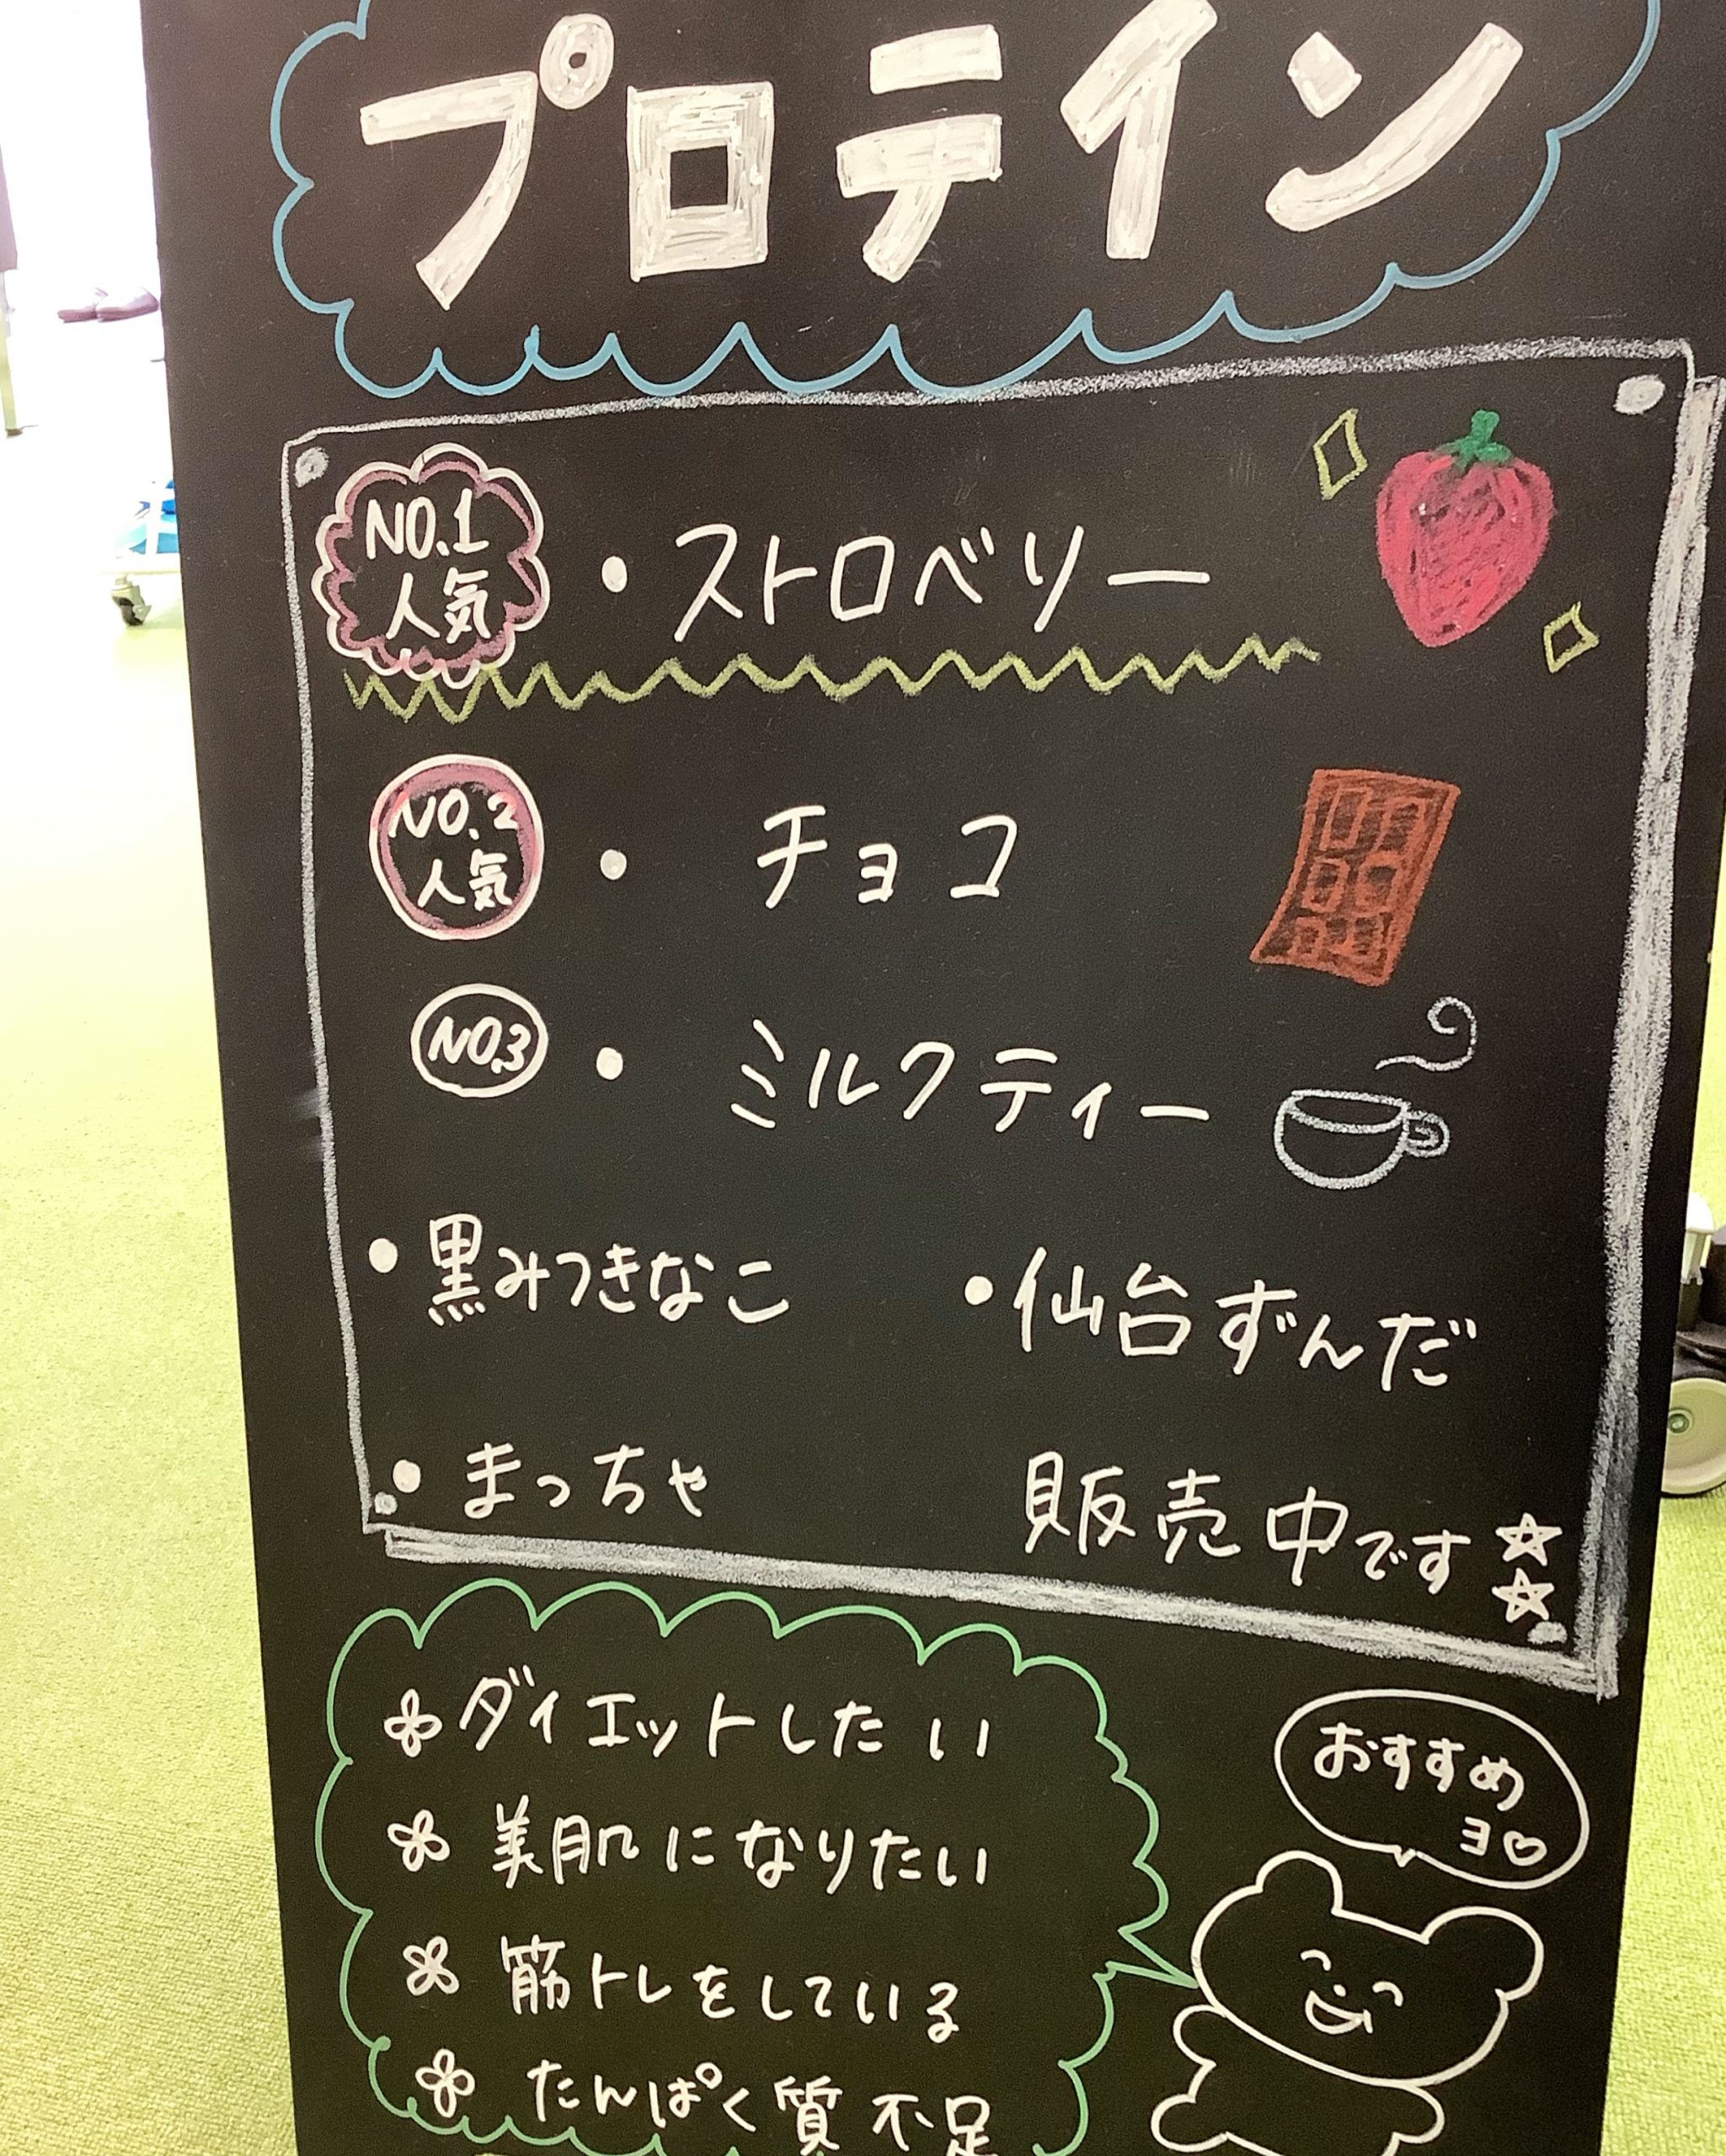 プロテイン
NO.1
人気
・ストロベリー
NO.2
人気
・チョコ
NO.3
・ミルクティー
・黒みつきなこ
・仙台ずんだ
・まっちゃ
販売中です☆☆
ダイエットしたい
美肌になりたい
筋トレをしている
たんぱく質不足
おすすめ
ヨ♡